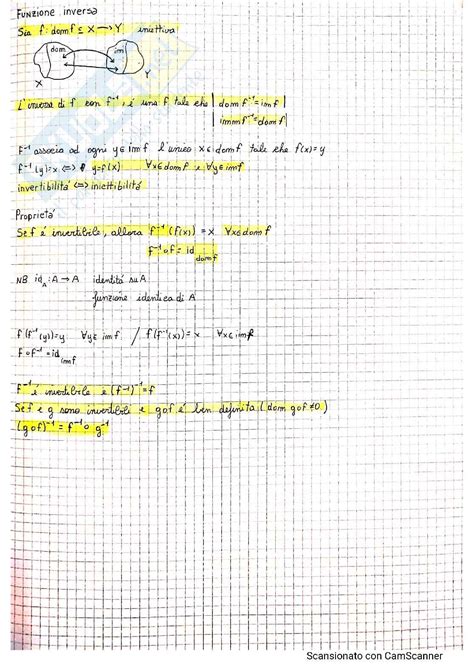 FUNZIONE inversa
Sia f: dom f ⊆ X → Y iniettiva
dom im
X Y
L'inversa di f con f⁻¹, è una f tale che | dom f⁻¹ = im f |
| imm f⁻¹ = dom f |
F⁻¹ associa ad ogni y ∈ im f l'unico x ∈ dom f tale che f(x)=y
F⁻¹(y)=x <=> y=f(x) ∀x ∈ dom f e ∀y ∈ im f
invertibilità <=> iniettibilità
Proprietà
Se f è invertibile, allora f⁻¹(f(x)) = x ∀x ∈ dom f
f⁻¹ o f = id dom f
NB id_A : A → A identità su A
funzione identica di A
f(f⁻¹(y)=y ∀y ∈ im f / f(f⁻¹(x)) = x ∀x ∈ im f
F o F⁻¹ = id im f
F⁻¹ è invertibile e (f⁻¹)⁻¹ = f
Se f e g sono invertibili e gof è ben definita (dom gof ≠0)
(gof)⁻¹ = f⁻¹ o g⁻¹
Scansionato con CamScanner